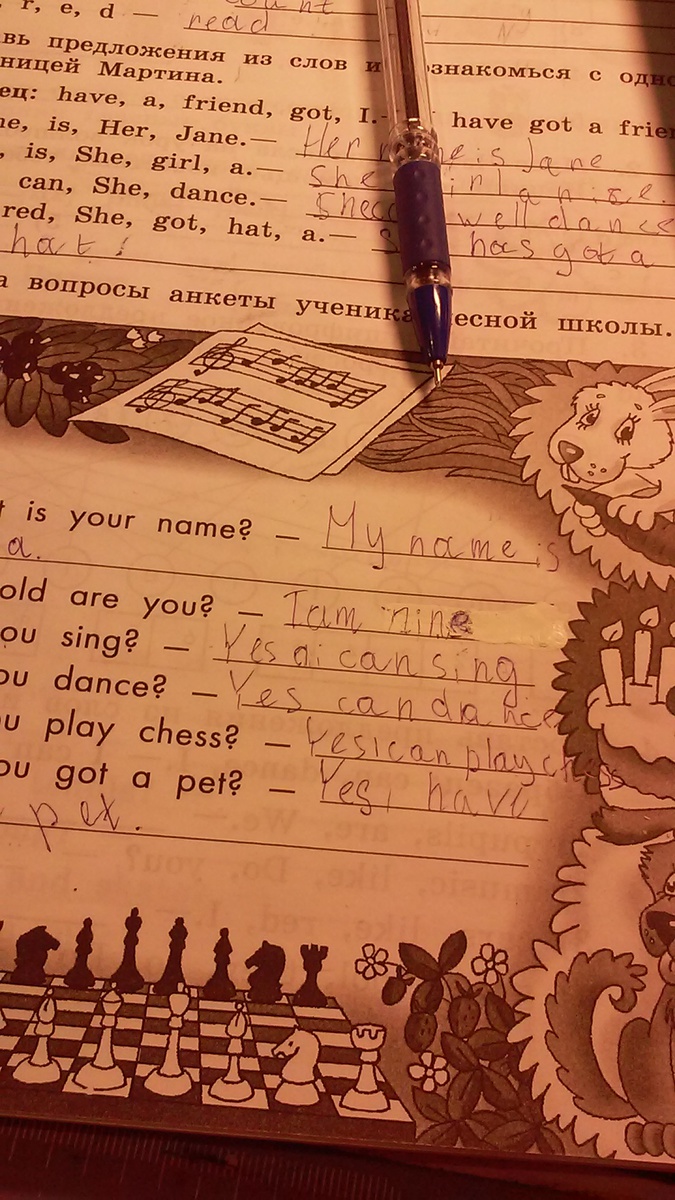 r, e, d — read
вь предложения из слов и ознакомься с одно
ницей Мартина.
ец: have, a, friend, got, I.- have got a frien
ne, is, Her, Jane.— Her is Jane
, is, She, girl, a.— She
can, She, dance.— well dance
red, She, got, hat, a.— has got a
hat.
а вопросы анкеты ученика есной школы.
t is your name? — My name is
a.
old are you? — I am nine
ou sing? — Yes can sing
ou dance? — Yes can dance
u play chess? — Yes I can play chess
ou got a pet? — Yes, i have
pet.